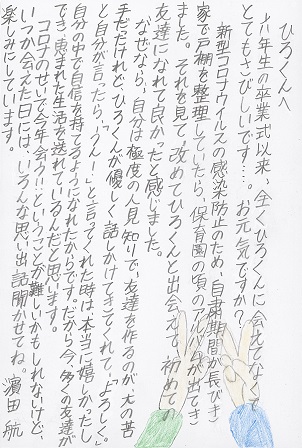 ひろくんへ
六年生の卒業式以来、全くひろくんに会えてなくて
とてもさびしいです…。お元気ですか？
新型コロナウイルスの感染防止のため、自粛期間が長びき、
家で戸棚を整理していたら、保育園の頃のアルバムが出てき
ました。それを見て、改めてひろくんと出会えて、初めての
友達になれて良かったと感じました。
なぜなら、自分は極度の人見知りで、友達を作るのが大の苦
手だったけれど、ひろくんが優しく話しかけてきてくれて、「よろしく。」
と自分が言ったら、「うん！」と言ってくれた時は、本当に嬉しかったし、
自分の中で自信を持てるようになれたからです。だから今、多くの友達が
でき、恵まれた生活を送れているんだと思います。
コロナのせいで今年会う！！ということが難しいかもしれないけど、
いつか会えた日には、いろんな思い出話聞かせてね。
楽しみにしています。
濵田 航